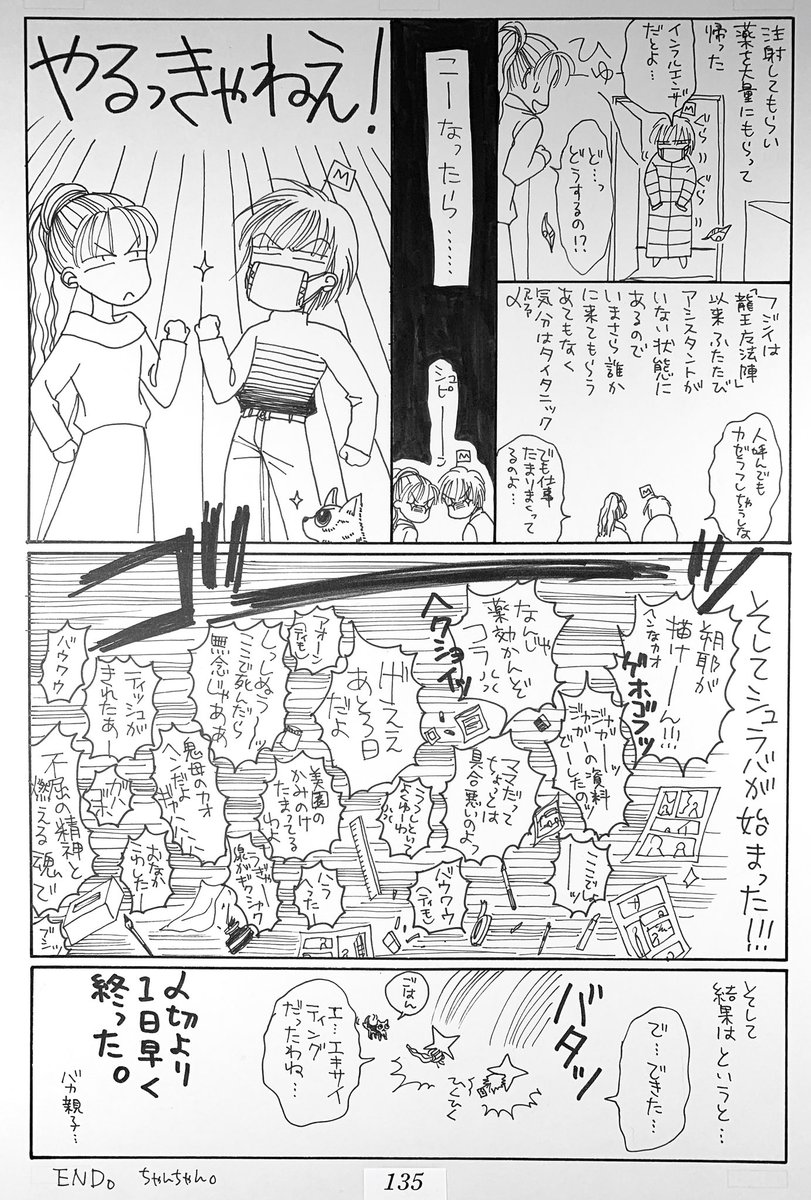 注射してもらい
薬を大量にもらって
帰った
インフルエンザ
だとよ…
ひゅー
M
ぐらぐら
ど…っ
どうするの!?
フジイは
「龍王魔法陣」
以来ふたたび
アシスタントが
いない状態に
あるので
いまさら誰か
に来てもらう
あてもなく
気分はタイタニック
人呼んでも
カゼうつしちゃうしな
M
でも仕事
たまりまくって
るのよ…
こーなったら……
シュピーーン
M
やるっきゃねえ!
M
そしてシュラバが始まった!!!
ゴーッ
朔耶が
描けーーん!!!
ヘンなカオ
ゲホゴフッ
なんじゃ
薬効かんぞ
コラハハ
ヘクショイッ
げええ
あと3日
だよ
アオーン
しっしぬうーッ
ここで死んだら
無念じゃああ
ティッシュが
きれたぁー
バウワウ
ジャガーッ
ジャガーの資料
どーしたのッ
ここでしょ
ーーッ
ママだって
ちょっとは
具合悪いのよっ
バウワウ
ハラ
へったー
美園の
かみのけ
たまってる
わよ
鬼母のカオ
ヘンだよ
ギャハハハ
おなか
こわしたー
ガハ
ゲボ
不屈の精神と
燃える魂で
そして
結果はというと…
で…できた…
バタッ
ひくひく
ごはん
エ…エキサイ
ティング
だったわね…
〆切より
1日早く
終った。
バカ親子…
END。 ちゃんちゃん。
135